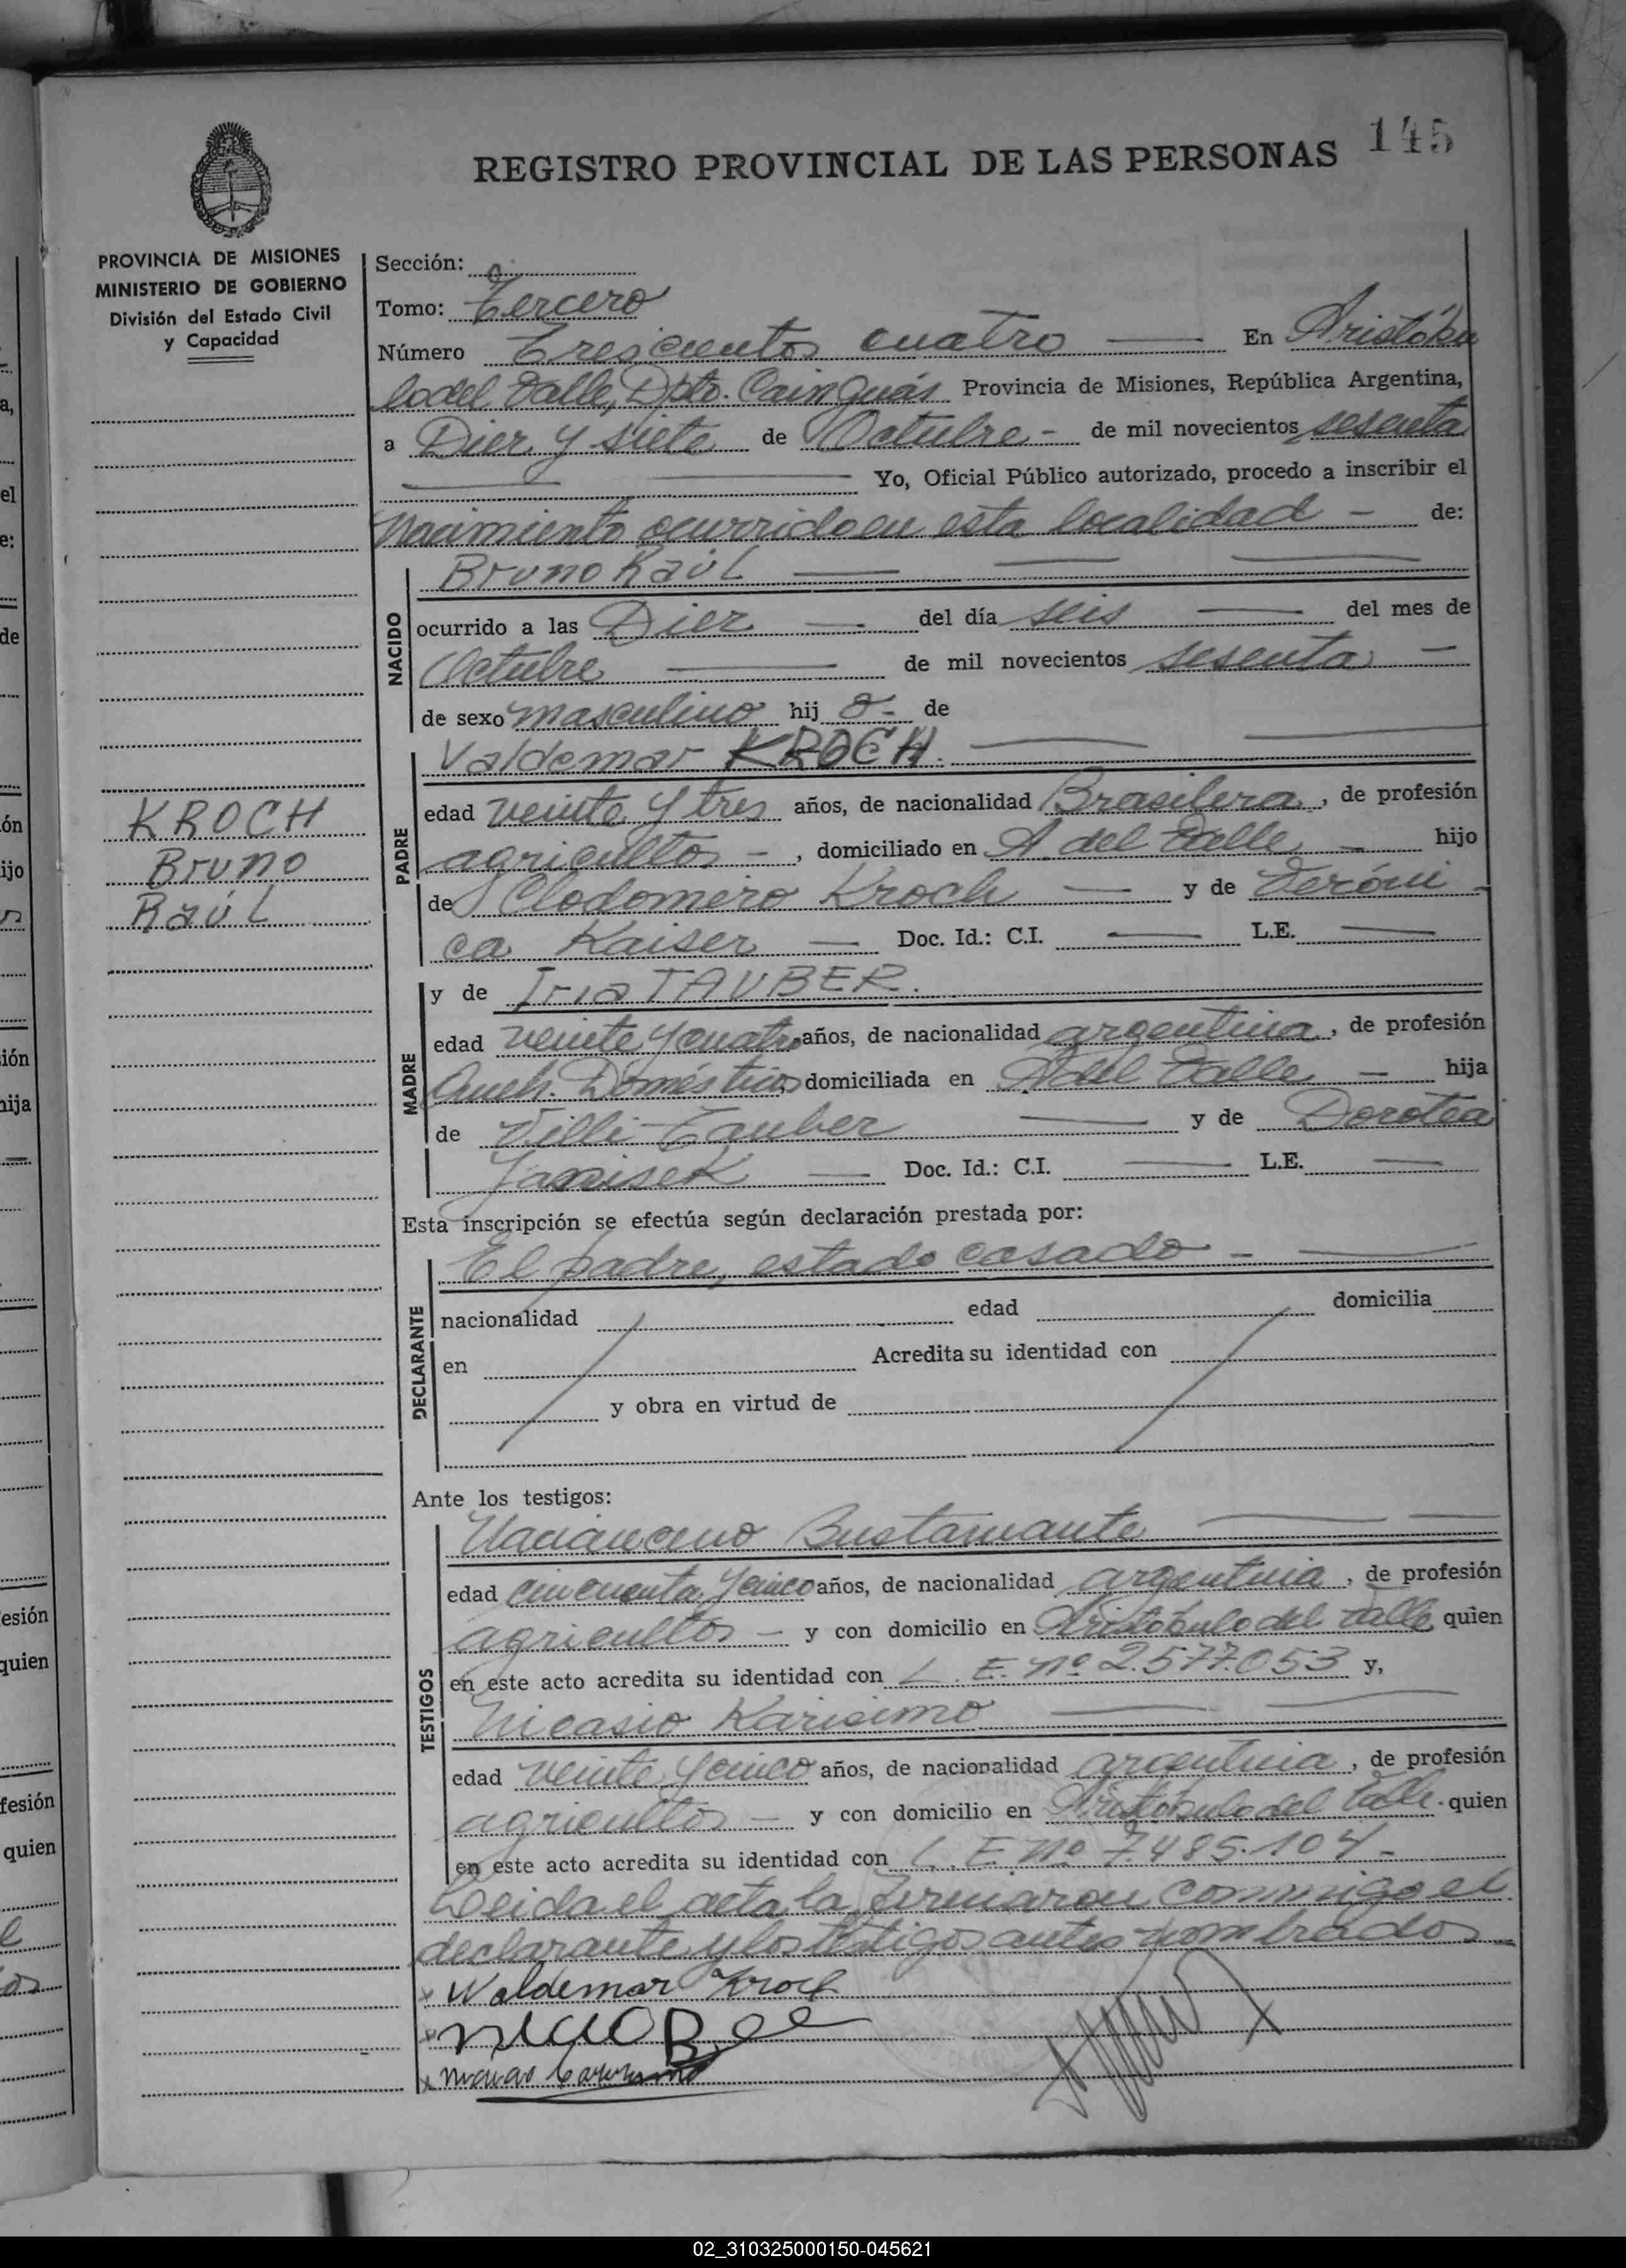 145
REGISTRO PROVINCIAL DE LAS PERSONAS
PROVINCIA DE MISIONES
MINISTERIO DE GOBIERNO
División del Estado Civil
y Capacidad
KROCH
Bruno
Raúl
Sección:
Tomo: Tercero
Número Trescientos cuatro En Aristóbu
lo del Valle, Dpto. Cainguás Provincia de Misiones, República Argentina,
a Diez y siete de Octubre - de mil novecientos sesenta
Yo, Oficial Público autorizado, procedo a inscribir el
Nacimiento ocurrido en esta localidad - de:
NACIDO
Bruno Raúl
ocurrido a las Diez del día seis del mes de
Octubre de mil novecientos sesenta
de sexo masculino hij o - de
PADRE
Valdemar KROCH.
edad veinte y tres años, de nacionalidad Brasilera, de profesión
agricultor -, domiciliado en A. del Valle hijo
de Clodomiro Kroch y de Veróni
ca Kaiser Doc. Id.: C.I. L.E.
MADRE
y de Iria TAUBER.
edad veinte y cuatro años, de nacionalidad argentina, de profesión
Queh. Domésticos domiciliada en A del Valle - hija
de Villi Tauber y de Dorotea
Janisek Doc. Id.: C.I. L.E.
Esta inscripción se efectúa según declaración prestada por:
DECLARANTE
El padre, estado casado -
nacionalidad edad domicilia
en Acredita su identidad con
y obra en virtud de
Ante los testigos:
TESTIGOS
Bustamante
edad cincuenta y cinco años, de nacionalidad argentina, de profesión
agricultor - y con domicilio en Aristóbulo del Valle quien
en este acto acredita su identidad con L.E. nº 2.577.053 y,
Nicasio Karisimo
edad veinte y cinco años, de nacionalidad argentina, de profesión
agricultor - y con domicilio en Aristóbulo del Valle. quien
en este acto acredita su identidad con L.E. nº 7.485.104 -
Leida el acta la firmaron conmigo el
declarante y los testigos antes nombrados
x Waldemar Kroch
02_310325000150-045621